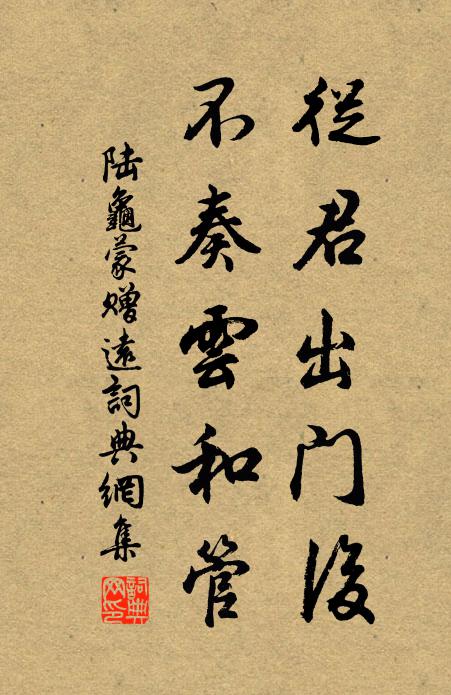 從君出門後
不奏雲和管
陸龜蒙贈遠詞典網集
詞典網印